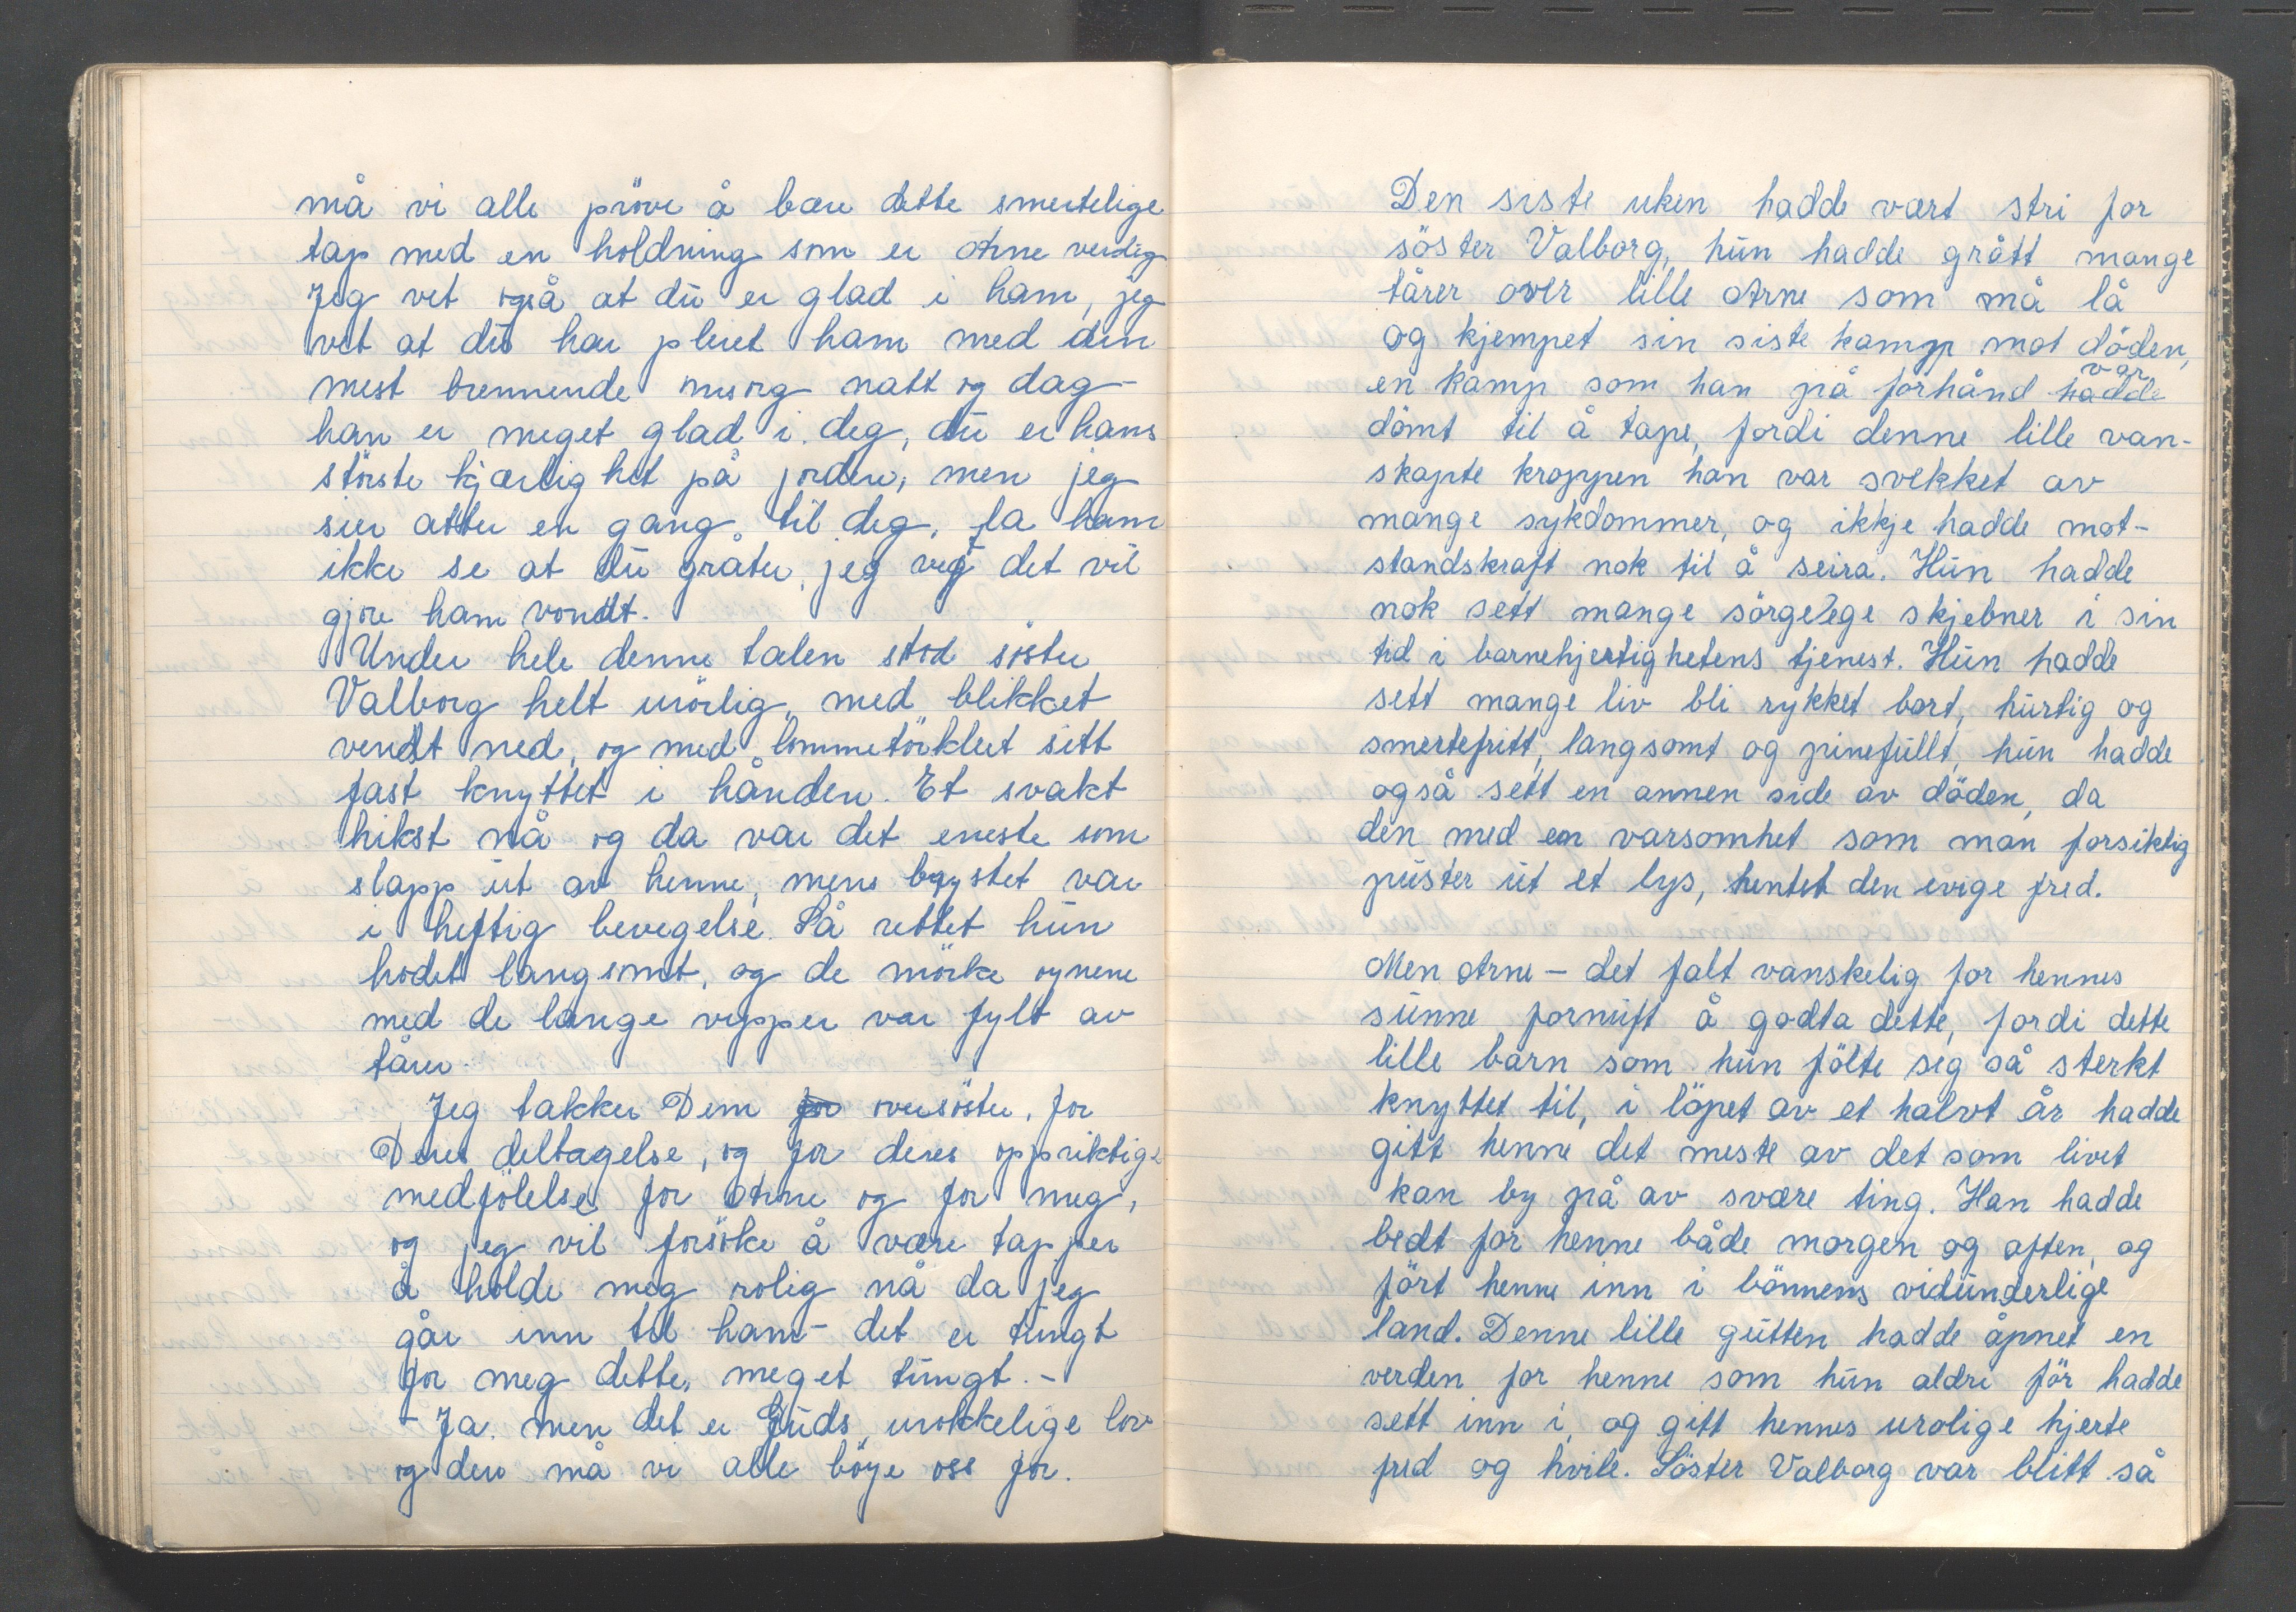 må vi alle pröve å bære dette smertelige
tap med en holdning som er Arne verdig
Jeg vet også at du er glad i ham, jeg
vet at du har pleiet ham med den
mest brennende omsorg natt og dag -
han er meget glad i deg, du er hans
störste kjærlighet på jorden, men jeg
sier atter en gang til deg, la ham
ikke se at du gråter, jeg vet det vil
gjöre ham vondt.
Under hele denne talen stod söster
Valborg helt urörlig, med blikket
vendt ned, og med lommetörkleet sitt
fast knyttet i hånden. Et svakt
hikst nå og da var det eneste som
slapp ut av henne, mens brystet var
i heftig bevegelse. Så rettet hun
hodet langsomt, og de mörke öynene
med de lange vipper var fylt av
tårer.
Jeg takker Dem for oversöster, for
Deres deltagelse, og for deres oppriktige
medfölelse for Arne og for meg,
og jeg vil forsöke å være tapper
å holde meg rolig nå da jeg
går inn til ham - det er tungt
for meg dette, meget tungt. -
- Ja. men det er Guds urokkelige lov
og den må vi alle böye oss for.
Den siste uken hadde vært stri for
söster Valborg, hun hadde grått mange
tårer over lille Arne som må lå
og kjempet sin siste kamp mot döden,
var
en kamp som han på forhånd hadde
dömt til å tape, fordi denne lille van-
skapte kroppen han var svekket av
mange sykdommer, og ikkje hadde mot-
standskraft nok til å seira. Hun hadde
nok sett mange sörgelege skjebner i sin
tid i barnehjertighetens tjenest. Hun hadde
sett mange liv bli rykket bort, hurtig og
smertefritt, langsomt og pinefullt, hun hadde
også sett en annen side av döden, da
den med en varsomhet som man forsiktig
puster ut et lys, hentet den evige fred.
Men Arne - det falt vanskelig for hennes
sunne fornuft å godta dette, fordi dette
lille barn som hun fölte seg så sterkt
knyttet til, i löpet av et halvt år hadde
gitt henne det meste av det som livet
kan by på av svære ting. Han hadde
bedt for henne både morgen og aften, og
fört henne inn i bönnens vidunderlige
land. Denne lille gutten hadde åpnet en
verden for henne som hun aldri för hadde
sett inn i, og gitt hennes urolige hjerte
fred og hvile. Söster Valborg var blitt så